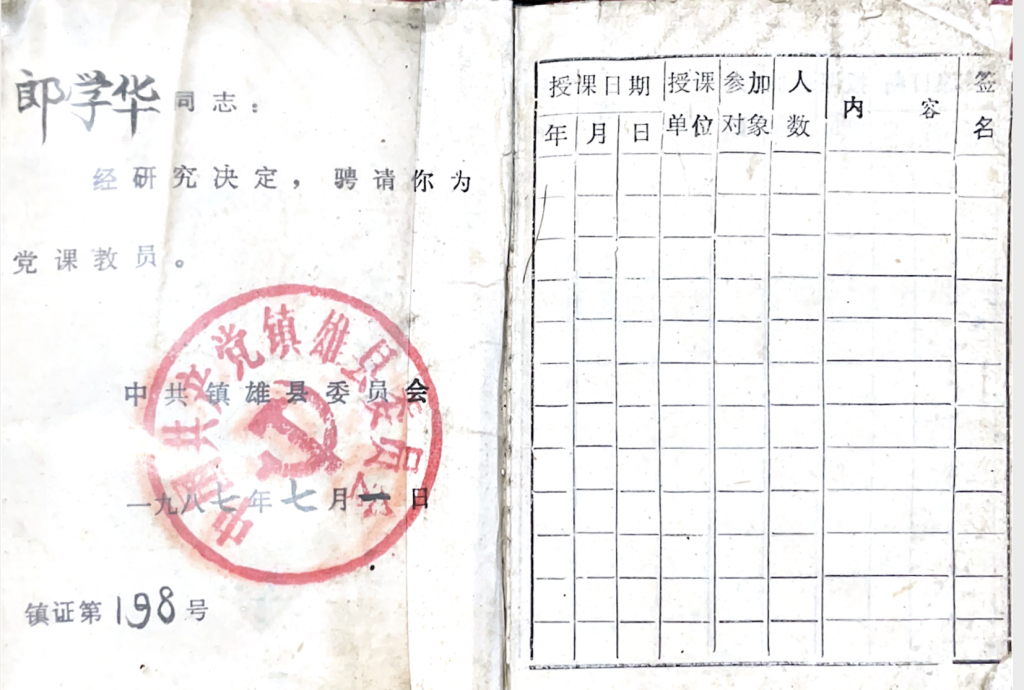 郎学华同志：
经研究决定，聘请你为
党课教员。
中共镇雄县委员会
一九八七年七月一日
中国共产党镇雄县委员会
镇证第198号
授课日期 授课单位 参加对象 人数 内容 签名
年 月 日